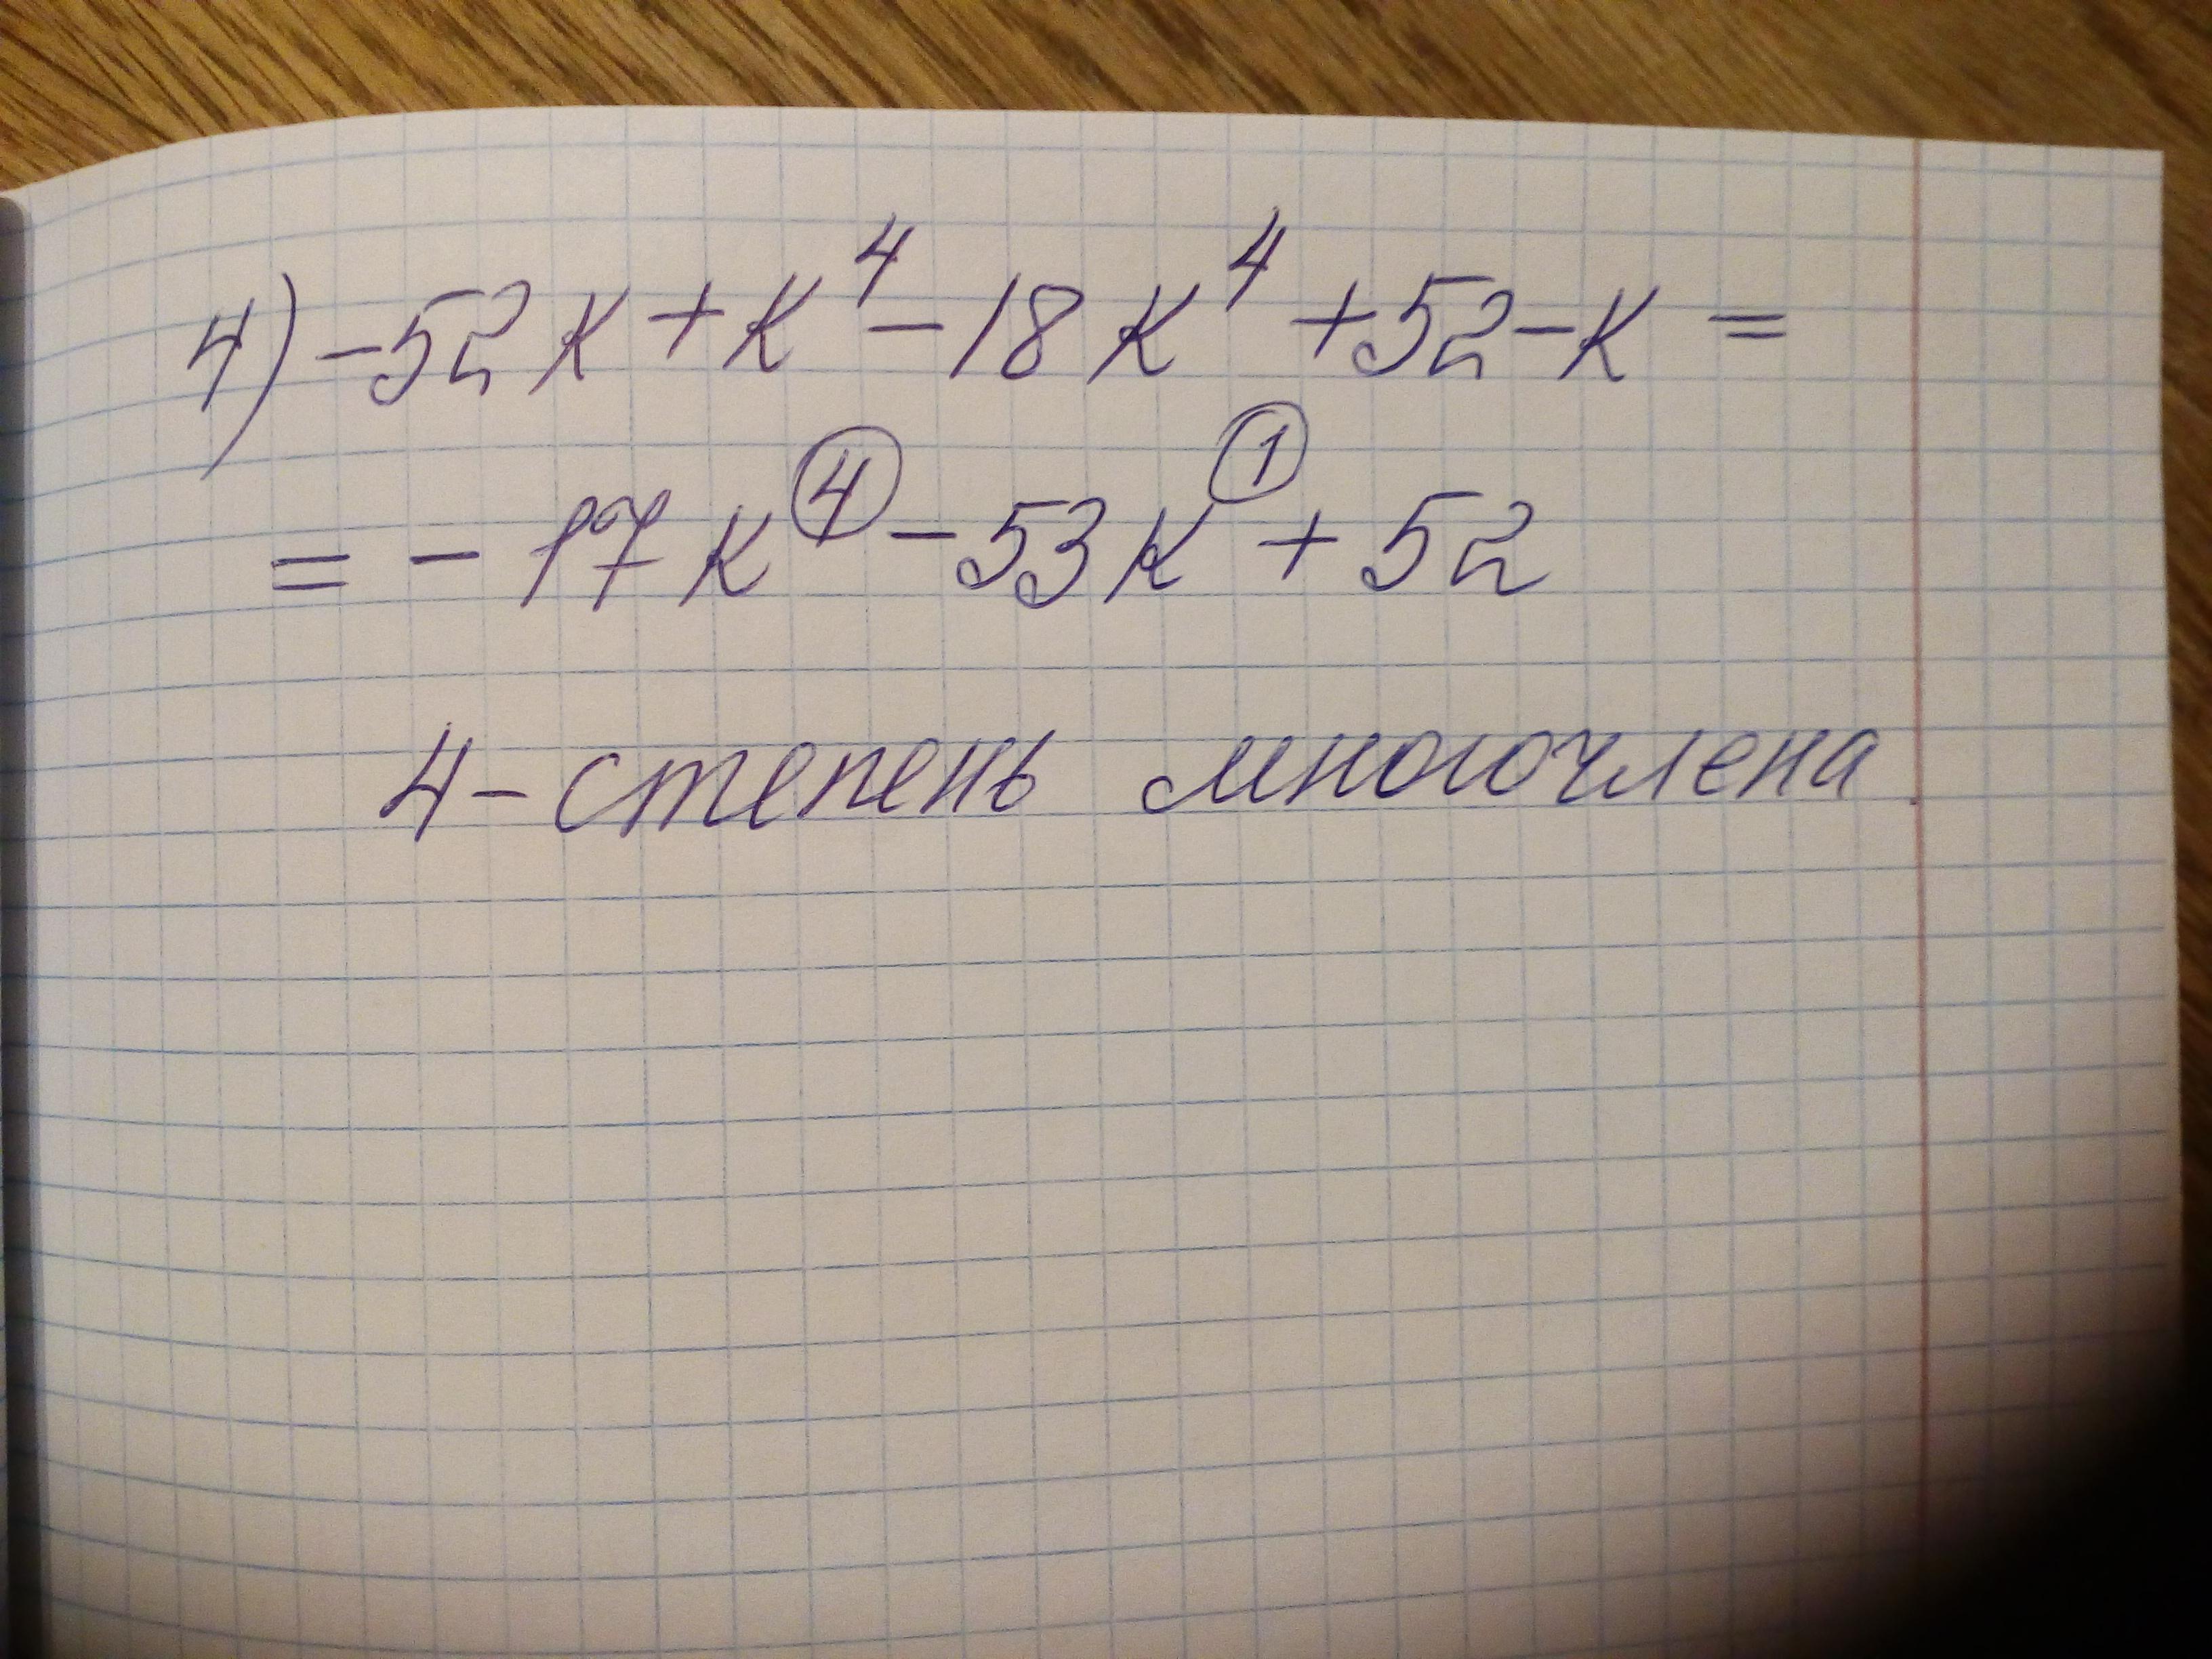 4) -52к + к⁴ - 18к⁴ + 52 - к =
= - 17к⁴ - 53к¹ + 52
4 - степень многочлена.